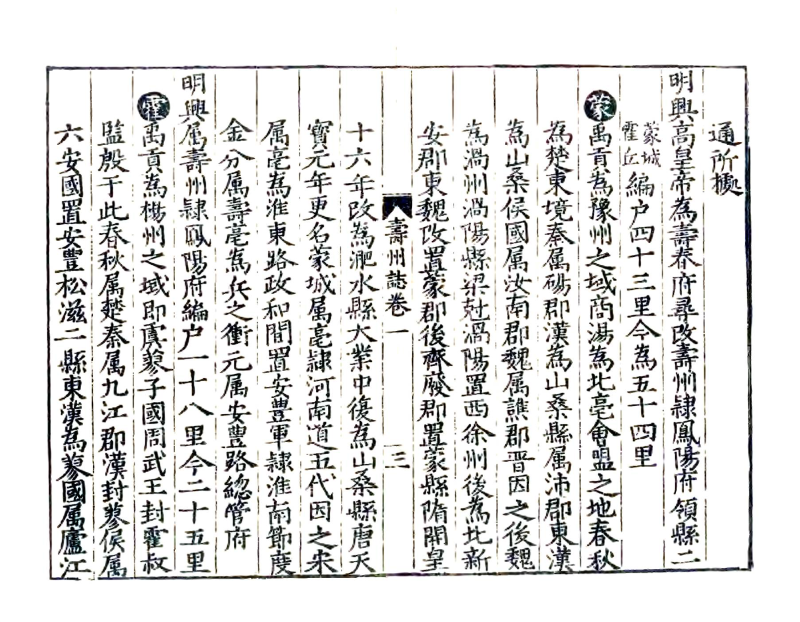 通所據
明興高皇帝為壽春府尋改壽州隸鳳陽府領縣二
蒙城
霍丘
編户四十三里今為五十四里
蒙禹貢為豫州之域商湯為北亳會盟之地春秋
為楚東境秦属碭郡漢為山桑縣属沛郡東漢
為山桑侯國属汝南郡魏属譙郡晉因之後魏
為渦州渦陽縣梁尅渦陽置西徐州後為北新
安郡東魏改置蒙郡後齊廢郡置蒙縣隋開皇
壽州誌卷一
三
十六年改為淝水縣大業中復為山桑縣唐天
寳元年更名蒙城属亳隷河南道五代因之宋
属亳為淮東路政和間置安豊軍隷淮南節度
金分属壽亳為兵之衝元属安豊路總管府
明興属壽州隸鳳陽府編户一十八里今二十五里
霍禹貢為楊州之域即虞蓼子國周武王封霍叔
監殷于此春秋属楚秦属九江郡漢封蓼侯属
六安國置安豊松滋二縣東漢為蓼國属廬江